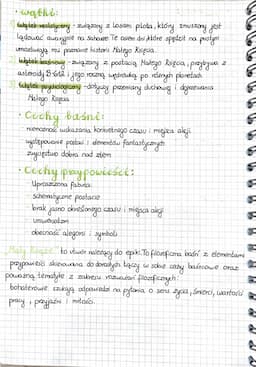 • wątki:
Wątek realistyczny - związany z losem pilota, który zmuszony jest
lądować awaryjnie na Saharze. Te osiem dni, które spędził na pustyni
umożliwiają mu poznanie historii Małego Księcia.
Wątek baśniowy - związany z postacią Małego Księcia, przybysza z
asteroidy B-612 i jego roczną wędrówką po różnych planetach
Wątek psychologiczny - dotyczy przemiany duchowej i dojrzewania
Małego Księcia
• Cechy baśni:
- niemożność wskazania konkretnego czasu i miejsca akcji
- występowanie postaci i elementów fantastycznych
- zwycięstwo dobra nad złem
• Cechy przypowieści:
- Uproszczona fabuła
- schematyczne postacie
- brak jasno określonego czasu i miejsca akcji
- uniwersalizm
- obecność alegorii i symboli
Mały Książę to utwór należący do epiki. To filozoficzna baśń z elementami
przypowieści skierowana do dorosłych. Łączy w sobie cechy baśniowe oraz
poważną tematykę z zakresu rozważań filozoficznych:
bohaterowie szukają odpowiedzi na pytania o sens życia, śmierci, wartości
pracy, przyjaźni i miłości.